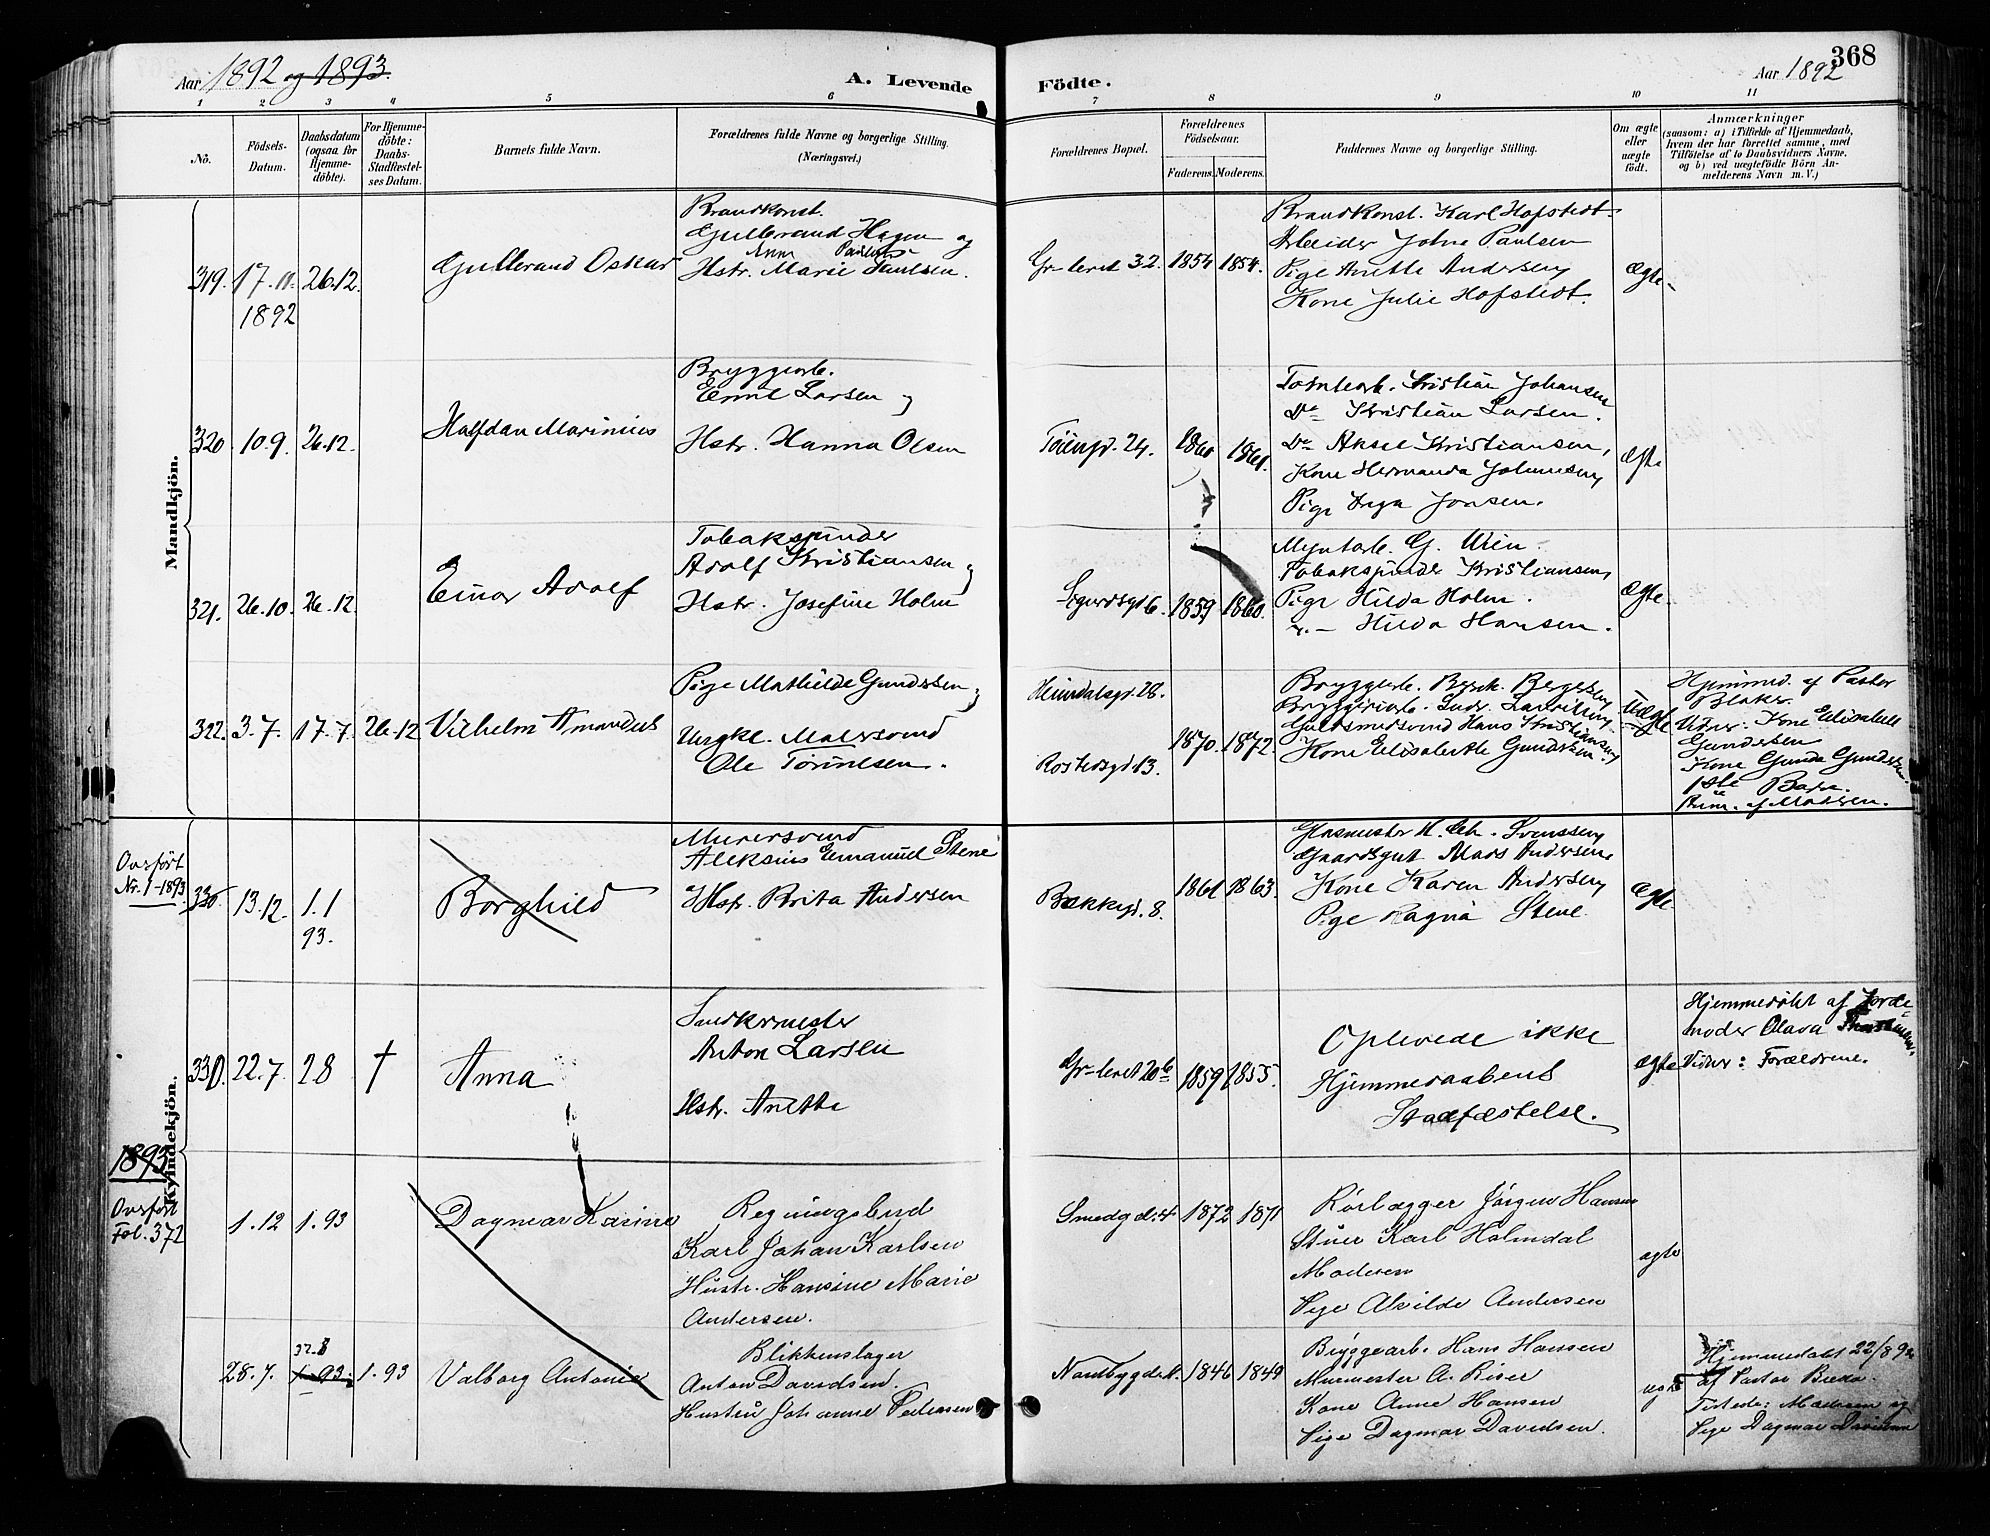 Aar 1892 og 1893.
A. Levende
Födte.
Aar 1892
368
1 2 3 4 5 6 7 8 9 10 11
No.
Födsels-Datum.
Daabsdatum (ogsaa for Hjemmedöbte).
For Hjemmedöbte: Daabs-Stadfæstelses Datum.
Barnets fulde Navn.
Forældrenes fulde Navne og borgerlige Stilling. (Næringsvei.)
Forældrenes Bopæl.
Forældrenes Födselsaar.
Faderens. Moderens.
Faddernes Navne og borgerlige Stilling.
Om ægte eller uægte födt.
Anmærkninger
(saasom: a) i Tilfælde af Hjemmedaab, hvem der har forrettet samme, med Tilföielse af to Daabsvidners Navne, og b) ved uægtefödte Börn Anmelderens Navn m. V.)
Mandkjön.
319. 17.11. 1892
26.12.
Gulbrand Oskar
Brandkonst.
Gulbrand Hagen og
Anna Paulsen
Hstr. Marie Paulsen.
Gr-leret 32.
1854 1854.
Brandkonst. Karl Hofstedt
Arbeider Johne Paulsen
Pige Anette Andersen
Kone Julie Hofstedt.
ægte
320. 10.9. 26.12.
Halfdan Marinius
Bryggerarb.
Emil Larsen og
Hstr. Hanna Olsen
Töiengd. 24.
1861.
Tomtearb. Kristian Johansen
Do Kristian Larsen.
Do Aksel Kristiansen,
Kone Hermanda Johansen
Pige Inga Jonsen.
ægte
321. 26.10. 26.12.
Einar Adolf
Tobakspinder
Adolf Kristiansen og
Hstr. Josefine Holm
Sigurdsgd 6.
1859 1860.
Myntarb. G. Wien
Tobakspinder Kristiansen,
Pige Hilda Holm.
" — Hilda Hansen.
ægte.
322. 3.7. 17.7. 26.12
Vilhelm Amandus
Pige Mathilde Gundersen og
Ungkl. Malersvend
Ole Torinesen.
Heimdalsgd. 28.
Rostedsgd 13.
1870. 1872.
Bryggerarb. Bernh. Bergersen
Guldsmedsvend Hans Kristiansen
Kone Elisabeth Gundersen.
Uægte
Hjemmed. af Pastor
Blaker.
Vidner: Kone Elisabeth
Gundersen
Kone Gunda Gundersen.
1ste Barn.
Anm. af Moderen.
Kvindekjön.
Overfört
Nr. 1-1893.
13.12. 1.1
93.
Borghild
Murersvend
Aleksius Emanuel Stene
Hstr. Brita Andersen
Bækkegd. 8.
1861 1863.
Glasmester H. Chr. Svenssen
Gaardsgut Mads Andersen
Kone Karen Andersen
Pige Ragna Stene.
ægte
330. 22.7 2 8 †
Anna
Snedkermester
Anton Larsen
Hstr. Anette
Gr-leret 20b
1859 1855.
Oplevede ikke
Hjemmedaabens
Stadfæstelse.
ægte
Hjemmedöbt af Jorde-
moder Olava
Vidner: Forældrene.
1893
Overfört
Fol. 372
1.12 1.93
Dagmar Karine
Regningsbud
Karl Johan Karlsen
Hustr. Hansine Marie
Andersen.
Smedgd. 4
1872 1871
Rörlægger Jörgen Hansen
Stuer Karl Holmdal
Moderen
Pige Alvilde Andersen
ægte
28.7. 1.93 1.93
Valborg Antonie
Blikkenslager
Anton Davidsen.
Hustru Johanne Pedersen
1846 1849
Bryggearb. Hans Hansen
Murmester A. Riser
Kone Anne Hansen
Pige Dagmar Davidsen.
Hjemmedøbt 22/8 92
af Pastor Breda.
Tilstede: Moderen og
Pige Dagmar Davidsen